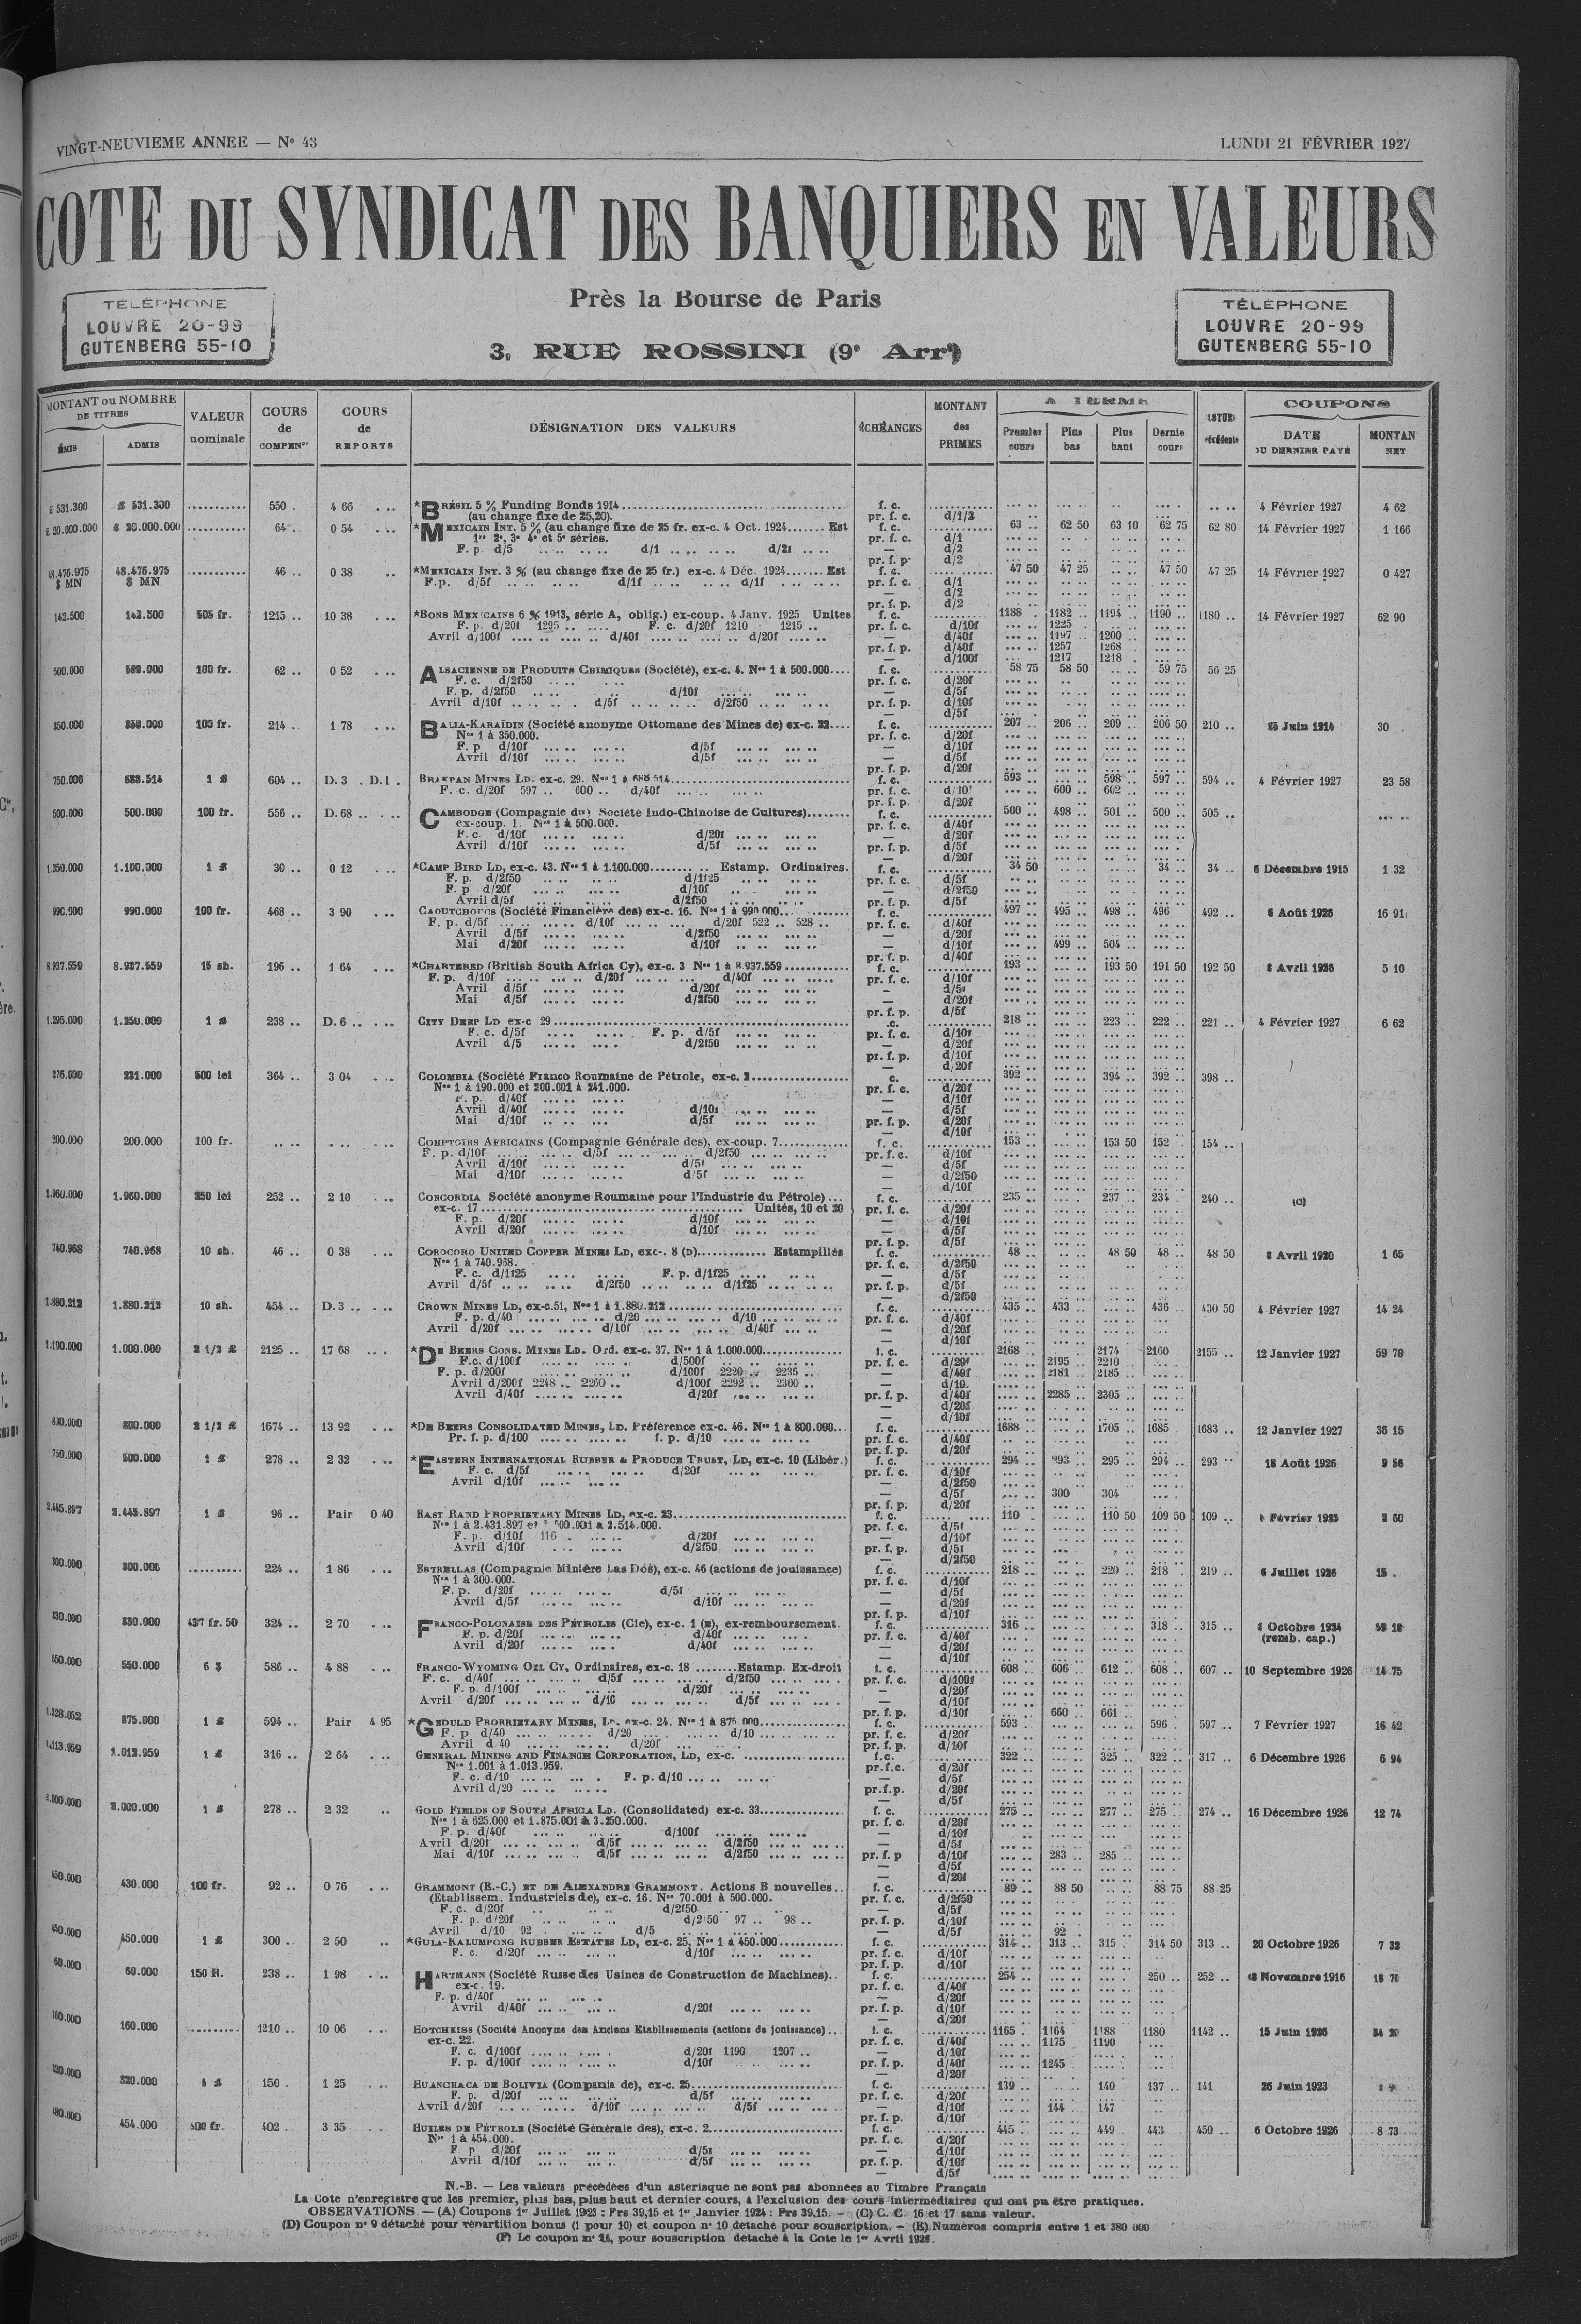 VINGT-NEUVIEME ANNEE — N° 43
LUNDI 21 FÉVRIER 1927
COTE DU SYNDICAT DES BANQUIERS EN VALEURS
Près la Bourse de Paris
3, RUE ROSSINI (9e Arrt)
TÉLÉPHONE
LOUVRE 20-99
GUTENBERG 55-10
TÉLÉPHONE
LOUVRE 20-99
GUTENBERG 55-10
MONTANT ou NOMBRE DE TITRES
ÉMIS ADMIS
VALEUR nominale
COURS de COMPENon
COURS de REPORTS
DÉSIGNATION DES VALEURS
ÉCHÉANCES
MONTANT des PRIMES
A TERME
Premier cours Plus bas Plus haut Dernie cours
COUPONS
DATE DU DERNIER PAYÉ
MONTAN NET
£ 531.300 £ 531.300 ........... 550 . 4 66 . .. *BRÉSIL 5 % Funding Bonds 1914 f. c. 4 Février 1927 4 62
(au change fixe de 25,20). pr. f. c. d/1/2
£ 20.000.000 £ 20.000.000 ........... 64 . 0 54 . .. *MEXICAIN INT. 5 % (au change fixe de 25 fr. ex-c. 4 Oct. 1924....... Est f. c. 63 .. 62 50 63 10 62 75 62 80 14 Février 1927 1 166
1re 2e, 3e 4e et 5e séries. pr. f. c. d/1
F. p. d/5 d/1 d/21 — d/2
pr. f. p. d/2
48.476.975 $ MN 48.476.975 $ MN ........... 46 .. 0 38 .. *MEXICAIN INT. 3 % (au change fixe de 25 fr.) ex-c. 4 Déc. 1924....... Est f. c. 47 50 47 25 47 50 47 25 14 Février 1927 0 427
F.p. d/5f d/1f d/1f pr. f. c. d/1
— d/2
pr. f. p. d/2
142.500 142.500 505 fr. 1215 .. 10 38 . .. *BONS MEXICAINS 6 % 1913, série A, oblig.) ex-coup. 4 Janv. 1925 Unites f. c. 1188 1182 .. 1194 .. 1190 .. 1180 .. 14 Février 1927 62 90
F. p. d/20f 1295 .. F. c. d/20f 1210 1215 .. pr. f. c. d/10f 1225
Avril d/100f d/40f d/20f — d/40f 1197 1200 ..
pr. f. p. d/40f 1257 1268 ..
— d/100f 1217 1218 .
500.000 500.000 100 fr. 62 .. 0 52 . .. ALSACIENNE DE PRODUITS CHIMIQUES (Société), ex-c. 4. Nos 1 à 500.000.... f. c. 58 75 58 50 59 75 56 25
F. c. d/2f50 pr. f. c. d/20f
F. p. d/2f50 d/10f — d/5f
Avril d/10f d/5f d/2f50 pr. f. p. d/10f
— d/5f
350.000 350.000 100 fr. 214 . 1 78 . .. BALIA-KARAÏDIN (Société anonyme Ottomane des Mines de) ex-c. 22.... f. c. 207 206 .. 209 .. 206 50 210 .. 25 Juin 1914 30
Nos 1 à 350.000. pr. f. c. d/20f
F. p d/10f d/5f — d/10f
Avril d/10f d/5f — d/5f
pr. f. p. d/20f
750.000 688.514 1 £ 604 .. D. 3 . D.1 . BRAKPAN MINES LD. ex-c. 29. Nos 1 à 688 514 f. c. 593 .. 598 .. 597 .. 594 .. 4 Février 1927 23 58
F. c. d/20f 597 .. 600 .. d/40f pr. f. c. d/10f 600 .. 602 ..
pr. f. p. d/20f
500.000 500.000 100 fr. 556 .. D. 68 .. CAMBODGE (Compagnie du) Société Indo-Chinoise de Cultures) f. c. 500 .. 498 .. 501 .. 500 .. 505 ..
ex-coup. 1. Nos 1 à 500.000. pr. f. c. d/40f
F. c. d/10f d/20f — d/20f
Avril d/10f d/5f pr. f. p. d/5f
— d/20f
1.350.000 1.100.000 1 £ 30 .. 0 12 . .. *CAMP BIRD LD, ex-c. 43. Nos 1 à 1.100.000 Estamp. Ordinaires. f. c. 34 50 34 .. 34 .. 6 Décembre 1915 1 32
F. p. d/2f50 d/1f25 pr. f. c. d/5f
F. p d/20f d/10f — d/2f50
Avril d/5f d/2f50 pr. f. p. d/5f
990.000 990.000 100 fr. 468 .. 3 90 . .. CAOUTCHOUCS (Société Financière des) ex-c. 16. Nos 1 à 990 000 f. c. 497 .. 495 .. 498 .. 496 492 .. 5 Août 1926 16 91
F. p. d/5f d/10f d/20f 522 .. 528 .. pr. f. c. d/40f
Avril d/5f d/2f50 — d/20f
Mai d/20f d/10f — d/10f 499 504
pr. f. p. d/40f
8.937.559 8.937.559 15 sh. 196 .. 1 64 . .. *CHARTERED (British South Africa Cy), ex-c. 3 Nos 1 à 8.937.559 f. c. 193 .. 193 50 191 50 192 50 8 Avril 1926 5 10
F. p. d/10f d/20f d/40f pr. f. c. d/10f
Avril d/5f d/20f — d/5f
Mai d/5f d/2f50 — d/20f
pr. f. p. d/5f
1.295.000 1.250.000 1 £ 238 .. D. 6 .. CITY DEEP LD ex-c 29 f.c. 218 .. 223 .. 222 .. 221 .. 4 Février 1927 6 62
F. c. d/5f F. p. d/5f pr. f. c. d/10f
Avril d/5 d/2f50 — d/20f
pr. f. p. d/10f
— d/20f
276.000 231.000 500 lei 364 .. 3 04 . .. COLOMBIA (Société Franco Roumaine de Pétrole, ex-c. 2 c. 392 .. 394 .. 392 .. 398 ..
Nos 1 à 190.000 et 200.001 à 241.000. pr. f. c. d/20f
F. p. d/40f — d/10f
Avril d/40f d/10f — d/5f
Mai d/10f d/5f pr. f. p. d/20f
— d/10f
200.000 200.000 100 fr. COMPTOIRS AFRICAINS (Compagnie Générale des), ex-coup. 7 f. c. 153 .. 153 50 152 .. 154 ..
F. p. d/10f d/5f d/2f50 pr. f. c. d/10f
Avril d/10f d/5f — d/5f
Mai d/10f d/5f — d/2f50
— d/10f
1.960.000 1.960.000 250 lei 252 .. 2 10 . .. CONCORDIA Société anonyme Roumaine pour l'Industrie du Pétrole)... f. c. 235 .. 237 .. 234 .. 240 .. (C)
ex-c. 17 Unités, 10 et 20 pr. f. c. d/20f
F. p. d/20f d/10f — d/10f
Avril d/20f d/10f — d/5f
pr. f. p. d/5f
740.968 740.968 10 sh. 46 .. 0 38 . .. COROCORO UNITED COPPER MINES LD, exc-. 8 (D) Estampillés f. c. 48 .. 48 50 48 .. 48 50 8 Avril 1920 1 65
Nos 1 à 740.968. pr. f. c. d/2f50
F. c. d/1f25 F. p. d/1f25 — d/5f
Avril d/5f d/2f50 d/1f25 pr. f. p. d/5f
— d/2f50
1.880.212 1.880.212 10 sh. 454 .. D. 3 .. CROWN MINES LD, ex-c.51, Nos 1 à 1.880.212 f. c. 435 .. 433 .. 436 .. 430 50 4 Février 1927 14 24
F. p. d/40 d/20 d/10 pr. f. c. d/40f
Avril d/20f d/10f d/40f — d/20f
— d/10f
1.190.000 1.000.000 2 1/2 £ 2125 .. 17 68 .. *DE BEERS CONS. MINES LD. Ord. ex-c. 37. Nos 1 à 1.000.000 f. c. 2168 2174 2160 2155 .. 12 Janvier 1927 59 70
F.c. d/100f d/500f pr. f. c. d/20f 2195 2210
F. p. d/200f d/100f 2220 .. 2235 .. — d/40f 2181 2185
Avril d/200f 2248 .. 2260 .. d/100f 2292 .. 2300 .. — d/10
Avril d/40f d/20f pr. f. p. d/40f 2285 2305
— d/20f
— d/10f
800.000 800.000 2 1/2 £ 1674 .. 13 92 . .. *DE BEERS CONSOLIDATED MINES, LD. Préférence ex-c. 46. Nos 1 à 800.000... f. c. 1688 1705 1685 1683 .. 12 Janvier 1927 36 15
Pr. f. p. d/100 f. p. d/10 pr. f. c. d/40f
pr. f. p. d/20f
750.000 500.000 1 £ 278 .. 2 32 . .. *EASTERN INTERNATIONAL RUBBER & PRODUCE TRUST, LD, ex-c. 10 (Libér.) f. c. 294 .. 293 295 294 .. 293 18 Août 1926 9 56
F. c. d/5f d/20f pr. f. c. d/10f
Avril d/10f — d/2f50
— d/5f 300 304
pr. f. p. d/20f
2.445.897 2.445.897 1 £ 96 .. Pair 0 40 EAST RAND PROPRIETARY MINES LD, ex-c. 23 f. c. 110 110 50 109 50 109 .. Février 2 60
Nos 1 à 2.431.897 et 2.500.001 à 2.514.000. pr. f. c. d/5f
F. p. d/10f 116 d/20f — d/10f
Avril d/10f d/2f50 pr. f. p. d/5f
— d/2f50
300.000 300.000 .......... 224 .. 1 86 . .. ESTRELLAS (Compagnie Minière Las Dos), ex-c. 46 (actions de jouissance) f. c. 218 .. 220 .. 218 .. 219 .. 6 Juillet 1926 15 .
Nos 1 à 300.000. pr. f. c. d/10f
F. p. d/20f d/5f — d/5f
Avril d/5f d/10f — d/20f
pr. f. p. d/10f
330.000 437 fr. 50 324 .. 2 70 . .. FRANCO-POLONAISE DES PÉTROLES (Cie), ex-c. 1 (E), ex-remboursement. f. c. 316 .. 318 .. 315 .. 6 Octobre 1924
F. p. d/20f d/40f pr. f. c. d/40f (remb. cap.)
Avril d/20f d/40f — d/20f
— d/10f
550.000 550.000 6 $ 586 .. 4 88 . .. FRANCO-WYOMING OIL CY, Ordinaires, ex-c. 18 ........Estamp. Ex-droit f. c. 608 .. 606 .. 612 .. 608 .. 607 .. 10 Septembre 1926 14 75
F. c. d/40f d/5f d/2f50 pr. f. c. d/100f
F. p. d/100f d/20f — d/20f
Avril d/20f d/10 d/5f — d/10f
pr. f. p. d/10f 660 661
1.328.052 875.000 1 £ 594 .. Pair 4 95 *GEDULD PRORRIETARY MINES, LD. ex-c. 24. Nos 1 à 875 000 f. c. 593 596 597 .. 7 Février 1927 16 42
F. p. d/40 d/20 d/10 pr. f. c. d/20f
Avril d 40 d/20f pr. f. p. d/10f
1.113.959 1.013.959 1 £ 316 .. 2 64 . .. GENERAL MINING AND FINANCE CORPORATION, LD, ex-c. f.c. 322 325 322 317 .. 6 Décembre 1926 6 94
Nos 1.001 à 1.013.959. pr.f.c. d/20f
F. c. d/10 F. p. d/10 — d/5f
Avril d/20 pr.f.p. d/20f
— d/5f
2.000.000 2.000.000 1 £ 278 .. 2 32 .. GOLD FIELDS OF SOUTH AFRICA LD. (Consolidated) ex-c. 33 f. c. 275 277 .. 275 274 .. 16 Décembre 1926 12 74
Nos 1 à 625.000 et 1.875.001 à 3.250.000. pr. f. c. d/20f
F. p. d/40f d/100f — d/10f
Avril d/20f d/5f d/2f50 — d/5f
Mai d/10f d/5f d/2f50 pr. f. p d/10f 283 285
— d/5f
— d/20f
450.000 430.000 100 fr. 92 .. 0 76 . .. GRAMMONT (E.-C.) ET DE ALEXANDRE GRAMMONT. Actions B nouvelles.. f. c. 89 .. 88 50 88 75 88 25
(Etablissem. Industriels de), ex-c. 16. Nos 70.001 à 500.000. pr. f. c. d/2f50
F. c. d/20f d/2f50 — d/5f
F. p. d/20f d/2 50 97 .. 98 .. pr. f. p. d/10f
Avril d/10 92 d/5 — d/5f 92
450.000 450.000 1 £ 300 .. 2 50 .. *GULA-KALUMPONG RUBBER ESTATES LD, ex-c. 25, Nos 1 à 450.000 f. c. 314 .. 313 .. 315 314 50 313 .. 20 Octobre 1926 7 32
F. c. d/20f d/10f pr. f. c. d/10f
pr. f. p. d/10f
60.000 60.000 150 R. 238 .. 1 98 . .. HARTMANN (Société Russe des Usines de Construction de Machines).. f. c. 254 250 .. 252 .. Novembre 1916 18 70
ex-c. 19. pr. f. c. d/40f
F. p. d/40f — d/20f
Avril d/40f d/20f pr. f. p. d/10f
— d/20f
160.000 160.000 ......... 1210 .. 10 06 . .. HOTCHKISS (Société Anonyme des Anciens Etablissements (actions de jouissance)... f. c. 1165 1164 1188 1180 1142 .. 15 Juin 1926 34 20
ex-c. 22. pr. f. c. d/40f 1175 1190
F. c. d/100f d/20f 1190 1207 .. — d/10f
F. p. d/100f d/10f pr. f. p. d/40f 1245
— d/20f
320.000 320.000 150 . 1 25 . .. HUANCHACA DE BOLIVIA (Compania de), ex-c. 25 f. c. 139 .. 140 137 .. 141 26 Juin 1923
F. p. d/20f d/5f pr. f. c. d/20f
Avril d/20f d/10f d/5f — d/10f 144 147
pr. f. p. d/10f
454.000 100 fr. 402 . 3 35 . .. HUILES DE PÉTROLE (Société Générale des), ex-c. 2 f. c. 445 449 443 450 .. 6 Octobre 1926 8 73
Nos 1 à 454.000. pr. f. c. d/20f
F. p. d/20f d/5f — d/10f
Avril d/10f d/5f pr. f. p. d/10f
— d/5f
N.-B. — Les valeurs précédées d'un asterisque ne sont pas abonnées au Timbre Français
La Cote n'enregistre que les premier, plus bas, plus haut et dernier cours, à l'exclusion des cours intermédiaires qui ont pu être pratiques.
OBSERVATIONS — (A) Coupons 1er Juillet 1923 : Frs 39,15 et 1er Janvier 1924 : Frs 39,15. — (C) C. C. 16 et 17 sans valeur.
(D) Coupon n° 9 détaché pour répartition bonus (1 pour 10) et coupon n° 10 détaché pour souscription. — (E) Numéros compris entre 1 et 380 000
(F) Le coupon n° 26, pour souscription détaché à la Cote le 1er Avril 1926.